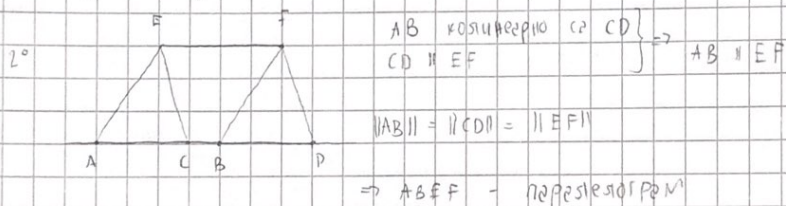 E F
2°
AB колинеарно са CD
CD || EF
=> AB || EF
||AB|| = ||CD|| = ||EF||
A C B D
=> ABEF - паралелограм